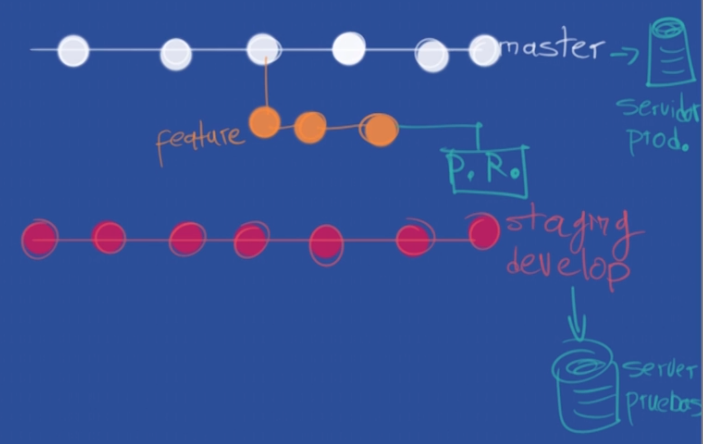 master
servidor
prod.
feature
P. R.
staging
develop
server
pruebas